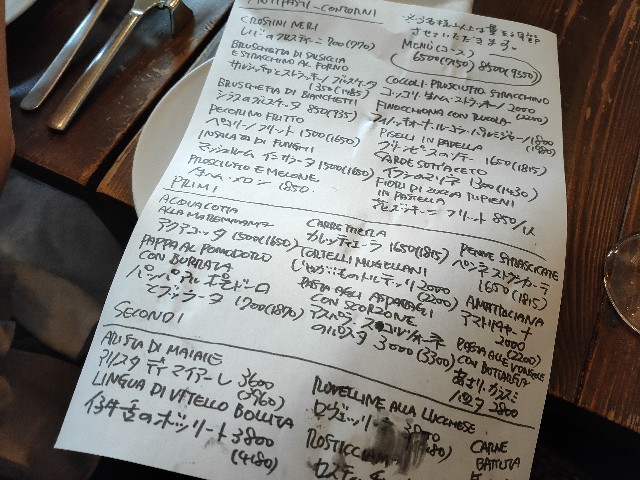 ANTIPASTI-CONTORNI
MENÙ(コース)
6500(7150) 8500(9350)
CROSTINI NERI
レバーのクロスティーニ 700(770)
BRUSCHETTA DI SALSICCIA
E STRACCHINO AL FORNO
サルシッチャとストラッキーノ ブルスケッタ
1350(1485)
BRUSCHETTA DI BIANCHETTI
シラスのブルスケッタ 850(935)
PECORINO FRITTO
ペコリーノ フリット 1500(1650)
INSALATA DI FUNGHI
マッシュルーム インサラータ 1500(1650)
PROSCIUTTO E MELONE
生ハム メロン 1850
COCCOLI PROSCIUTTO STRACCHINO
コッコリ 生ハム ストラッキーノ 2000
(2200)
FINOCCHIONA CON RUCOLA
フィノッキオーナ ルーコラ パルミジャーノ 1800
(1980)
PISELLI IN PADELLA
グリンピースのソテー 1650(1815)
SARDE SOTTACETO
イワシのマリネ 1300(1430)
FIORI DI ZUCCA RIPIENI
IN PASTELLA
花ズッキーニ フリット 850/1人
PRIMI
ACQUACOTTA
ALLA MAREMMANA
アクアコッタ 1500(1650)
PAPPA AL POMODORO
CON BURRATA
パッパ アル ポモドーロ
とブッラータ 1700(1870)
CARRETTIERA
カレッティエーラ 1650(1815)
TORTELLI MUGELLANI
じゃがいものトルテッリ 2000
(2200)
PASTA AGLI ASPARAGI
CON SCORZONE
アスパラ スコルツォーネ
のパスタ 3000(3300)
PENNE STRASCICATE
ペンネ ストラシカーテ
1650(1815)
AMATRICIANA
アマトリチャーナ
2000
(2200)
PASTA ALLE VONGOLE
CON BOTTARGA
あさり、カラスミ
パスタ 2800
SECONDI
ARISTA DI MAIALE
アリスタ ディ マイアーレ 3600
(3960)
LINGUA DI VITELLO BOLLITA
仔牛舌のボッリート 3800
(4180)
ROVELLINE ALLA LUCCHESE
ロヴェッリーネ
ROSTICCIANA
CARNE
BATTUTA